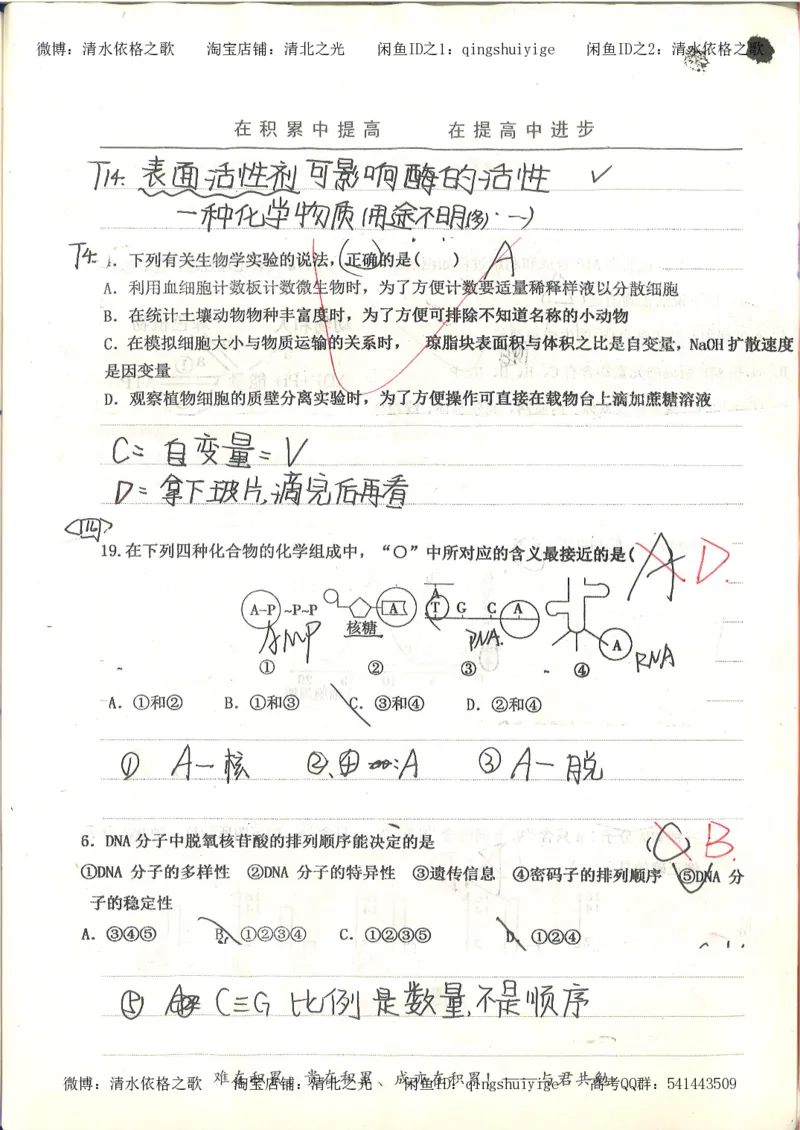 微博：清水依格之歌 淘宝店铺：清北之光 闲鱼ID之1：qingshuiyige 闲鱼ID之2：清水依格之歌
在积累中提高 在提高中进步
T14: 表面活性剂可影响酶的活性 ✓
一种化学物质(用途不明
T4: 1. 下列有关生物学实验的说法，正确的是( ) A
A．利用血细胞计数板计数微生物时，为了方便计数要适量稀释样液以分散细胞
B．在统计土壤动物物种丰富度时，为了方便可排除不知道名称的小动物
C．在模拟细胞大小与物质运输的关系时， 琼脂块表面积与体积之比是自变量，NaOH扩散速度
是因变量
D．观察植物细胞的质壁分离实验时，为了方便操作可直接在载物台上滴加蔗糖溶液
C= 自变量=V
D= 拿下玻片,滴完后再看
四
19.在下列四种化合物的化学组成中，“〇”中所对应的含义最接近的是( A D.
A-P ~P~P A A T G C A A
核糖
AMP DNA. RNA
① ② ③ ④
A．①和② B．①和③ C．③和④ D．②和④
① A—核 ②、 :A ③ A—脱
6．DNA分子中脱氧核苷酸的排列顺序能决定的是 (C) B.
①DNA 分子的多样性 ②DNA 分子的特异性 ③遗传信息 ④密码子的排列顺序 ⑤DNA 分
子的稳定性
A．③④⑤ B．①②③④ C．①②③⑤ D．①②④
⑤ C≡G 比例是数量,不是顺序
难在积累、贵在积累、成亦在积累！——与君共勉
微博：清水依格之歌 淘宝店铺：清北之光 闲鱼ID：qingshuiyige 高考QQ群：541443509